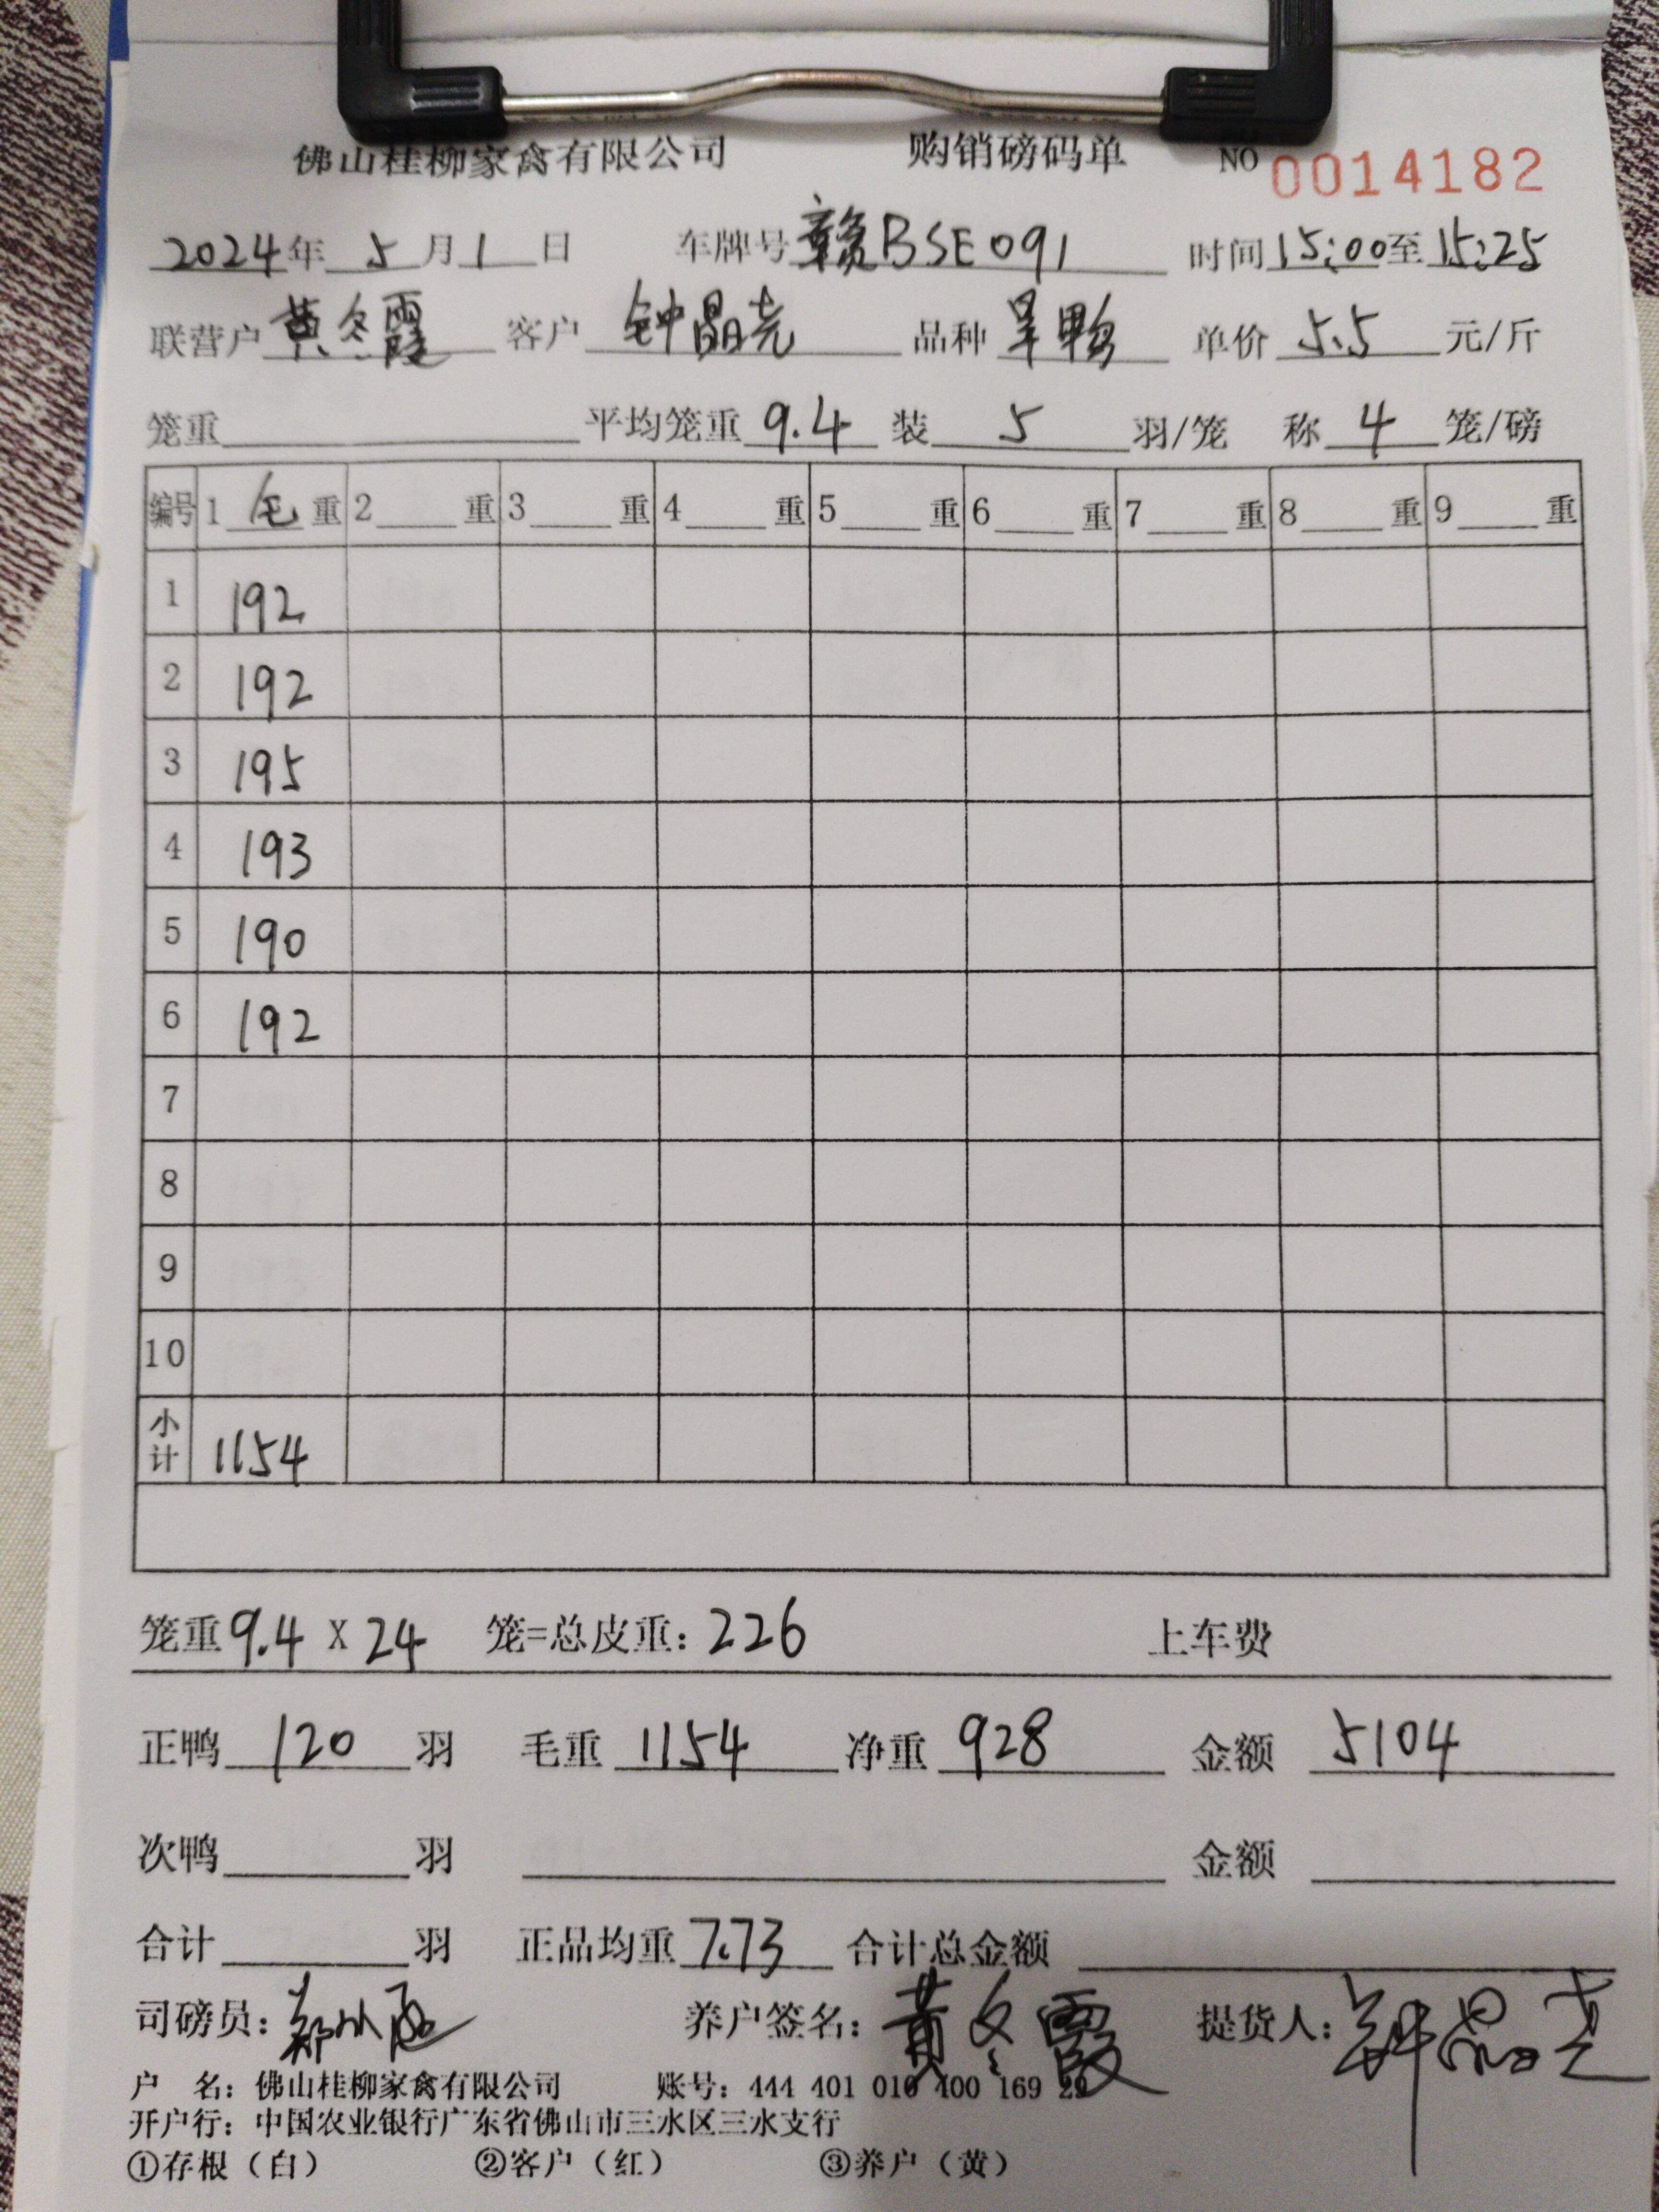 佛山桂柳家禽有限公司 购销磅码单 NO 0014182
2024年 5月1日 车牌号 赣BSE091 时间15:00至15:25
联营户 黄冬霞 客户 钟晶尧 品种 旱鸭 单价 5.5 元/斤
笼重 平均笼重 9.4 装 5 羽/笼 称 4 笼/磅
编号 1 毛 重 2 重 3 重 4 重 5 重 6 重 7 重 8 重 9 重
1 192
2 192
3 195
4 193
5 190
6 192
7
8
9
10
小计 1154
笼重 9.4 X 24 笼=总皮重: 226 上车费
正鸭 120 羽 毛重 1154 净重 928 金额 5104
次鸭 羽 金额
合计 羽 正品均重 7.73 合计总金额
司磅员: 养户签名: 黄冬霞 提货人: 钟晶尧
户 名: 佛山桂柳家禽有限公司 账号: 444 401 010 400 169 29
开户行: 中国农业银行广东省佛山市三水区三水支行
①存根（白） ②客户（红） ③养户（黄）